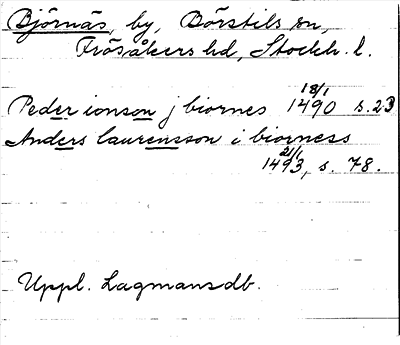 Björnäs, by, Börstils sn,
Frösåkers hd, Stockh. l.
Peder ionson j biornes 18/1 1490 s. 23
Anders laurensson i biorness
21/1 1493, s. 78.
Uppl. Lagmansdb.